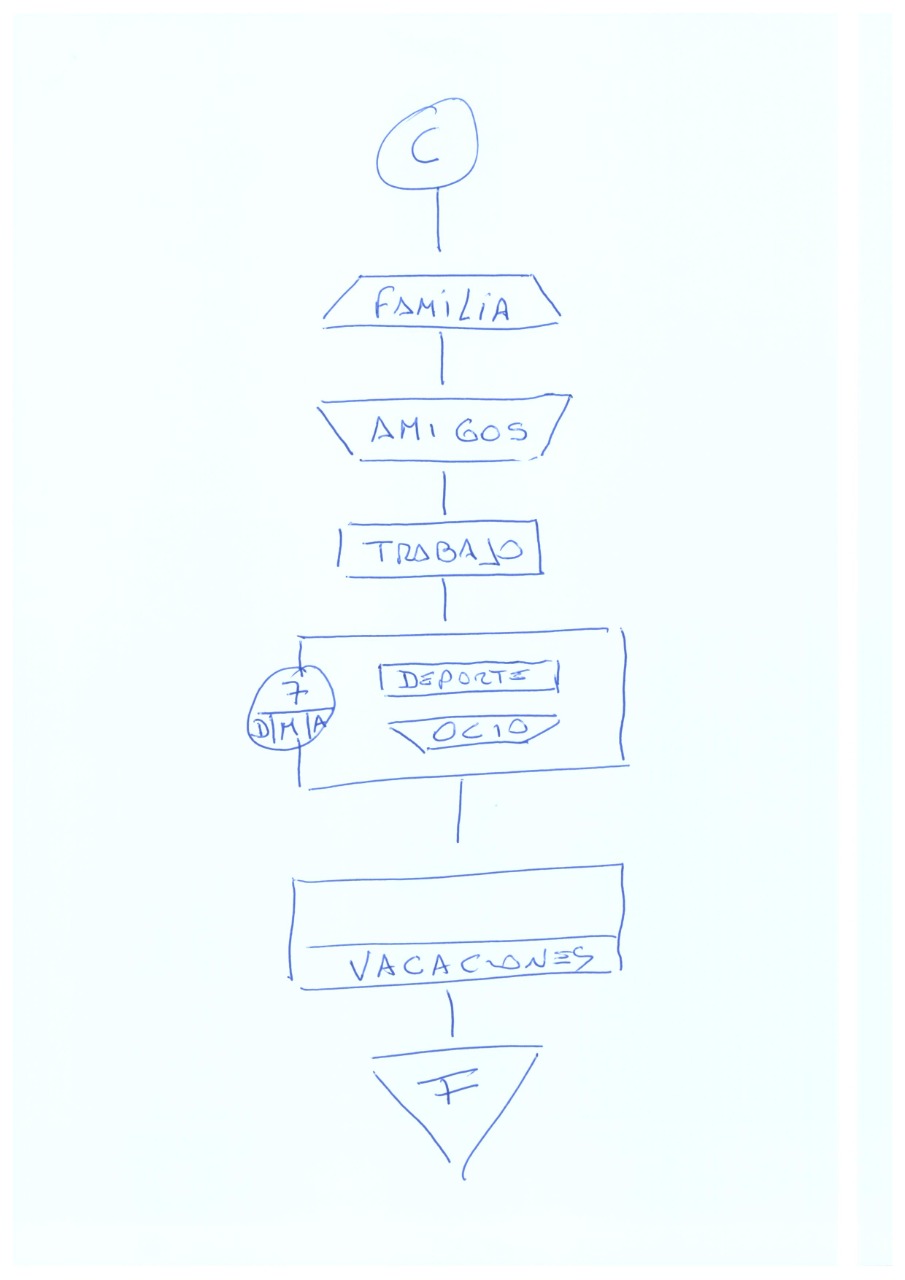 C
FAMILIA
AMIGOS
TRABAJO
DEPORTE
7
D|M|A
OCIO
VACACIONES
F